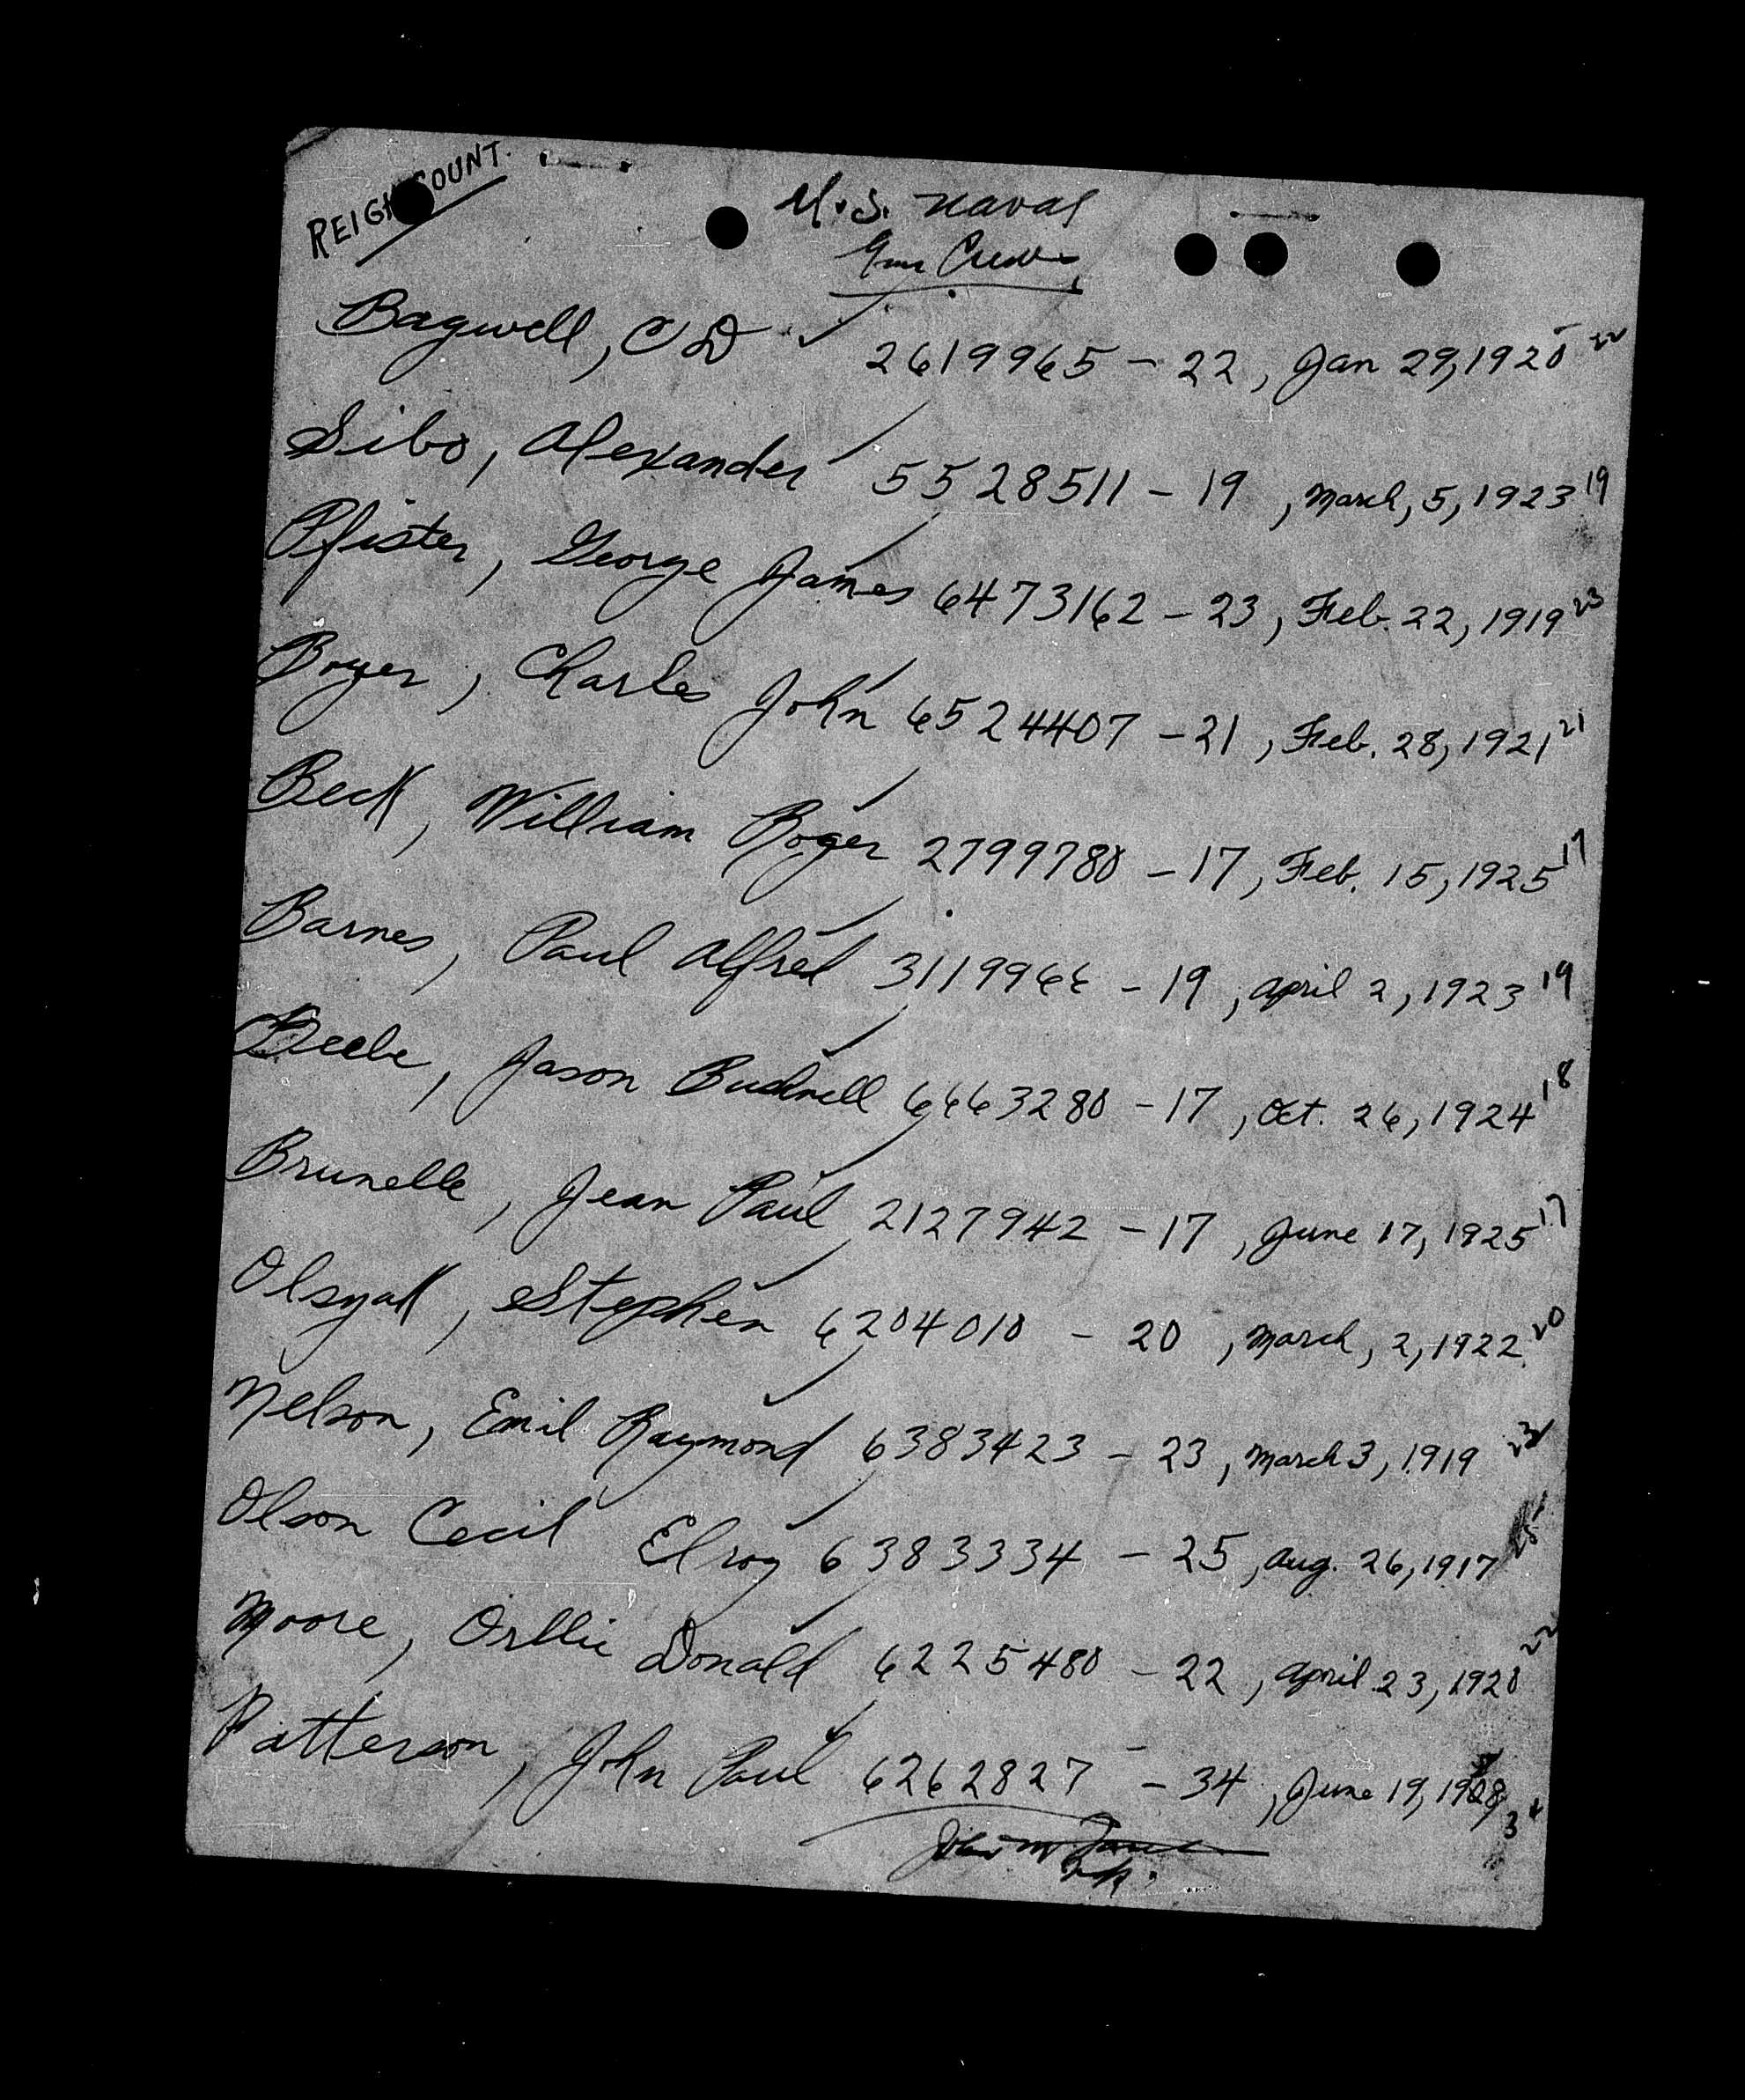 REIGH COUNT.
U.S. Naval
Gun Crew
Bagwell, C D 2619965 - 22, Jan 29, 1920 22
Sibo, Alexander 5528511 - 19, March, 5, 1923 19
Pfister, George James 6473162 - 23, Feb. 22, 1919 23
Boyer, Charles John 6524407 - 21, Feb. 28, 1921 21
Beck, William Roger 2799780 - 17, Feb. 15, 1925 17
Barnes, Paul Alfred 3119966 - 19, April 2, 1923 19
Beebe, Jason 6663280 - 17, Oct. 26, 1924 18
Brunelle, Jean Paul 2127942 - 17, June 17, 1925 17
Olsyak, Stephen 6204010 - 20, March, 2, 1922 20
Nelson, Emil Raymond 6383423 - 23, March 3, 1919 23
Olson Cecil Elroy 6383334 - 25, Aug. 26, 1917 25
Moore, Orllie Donald 6225480 - 22, April 23, 1920 22
Patterson, John Paul 6262827 - 34, June 19, 1908, 34